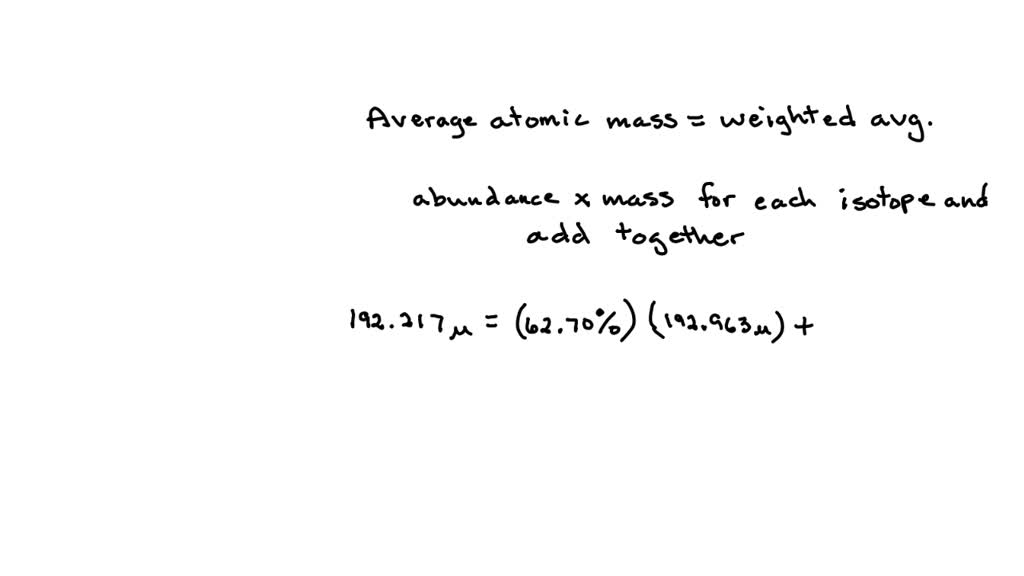 Average atomic mass = weighted avg.
abundance x mass for each isotope and
add together
192.217 u = (62.70%) (192.963 u) +